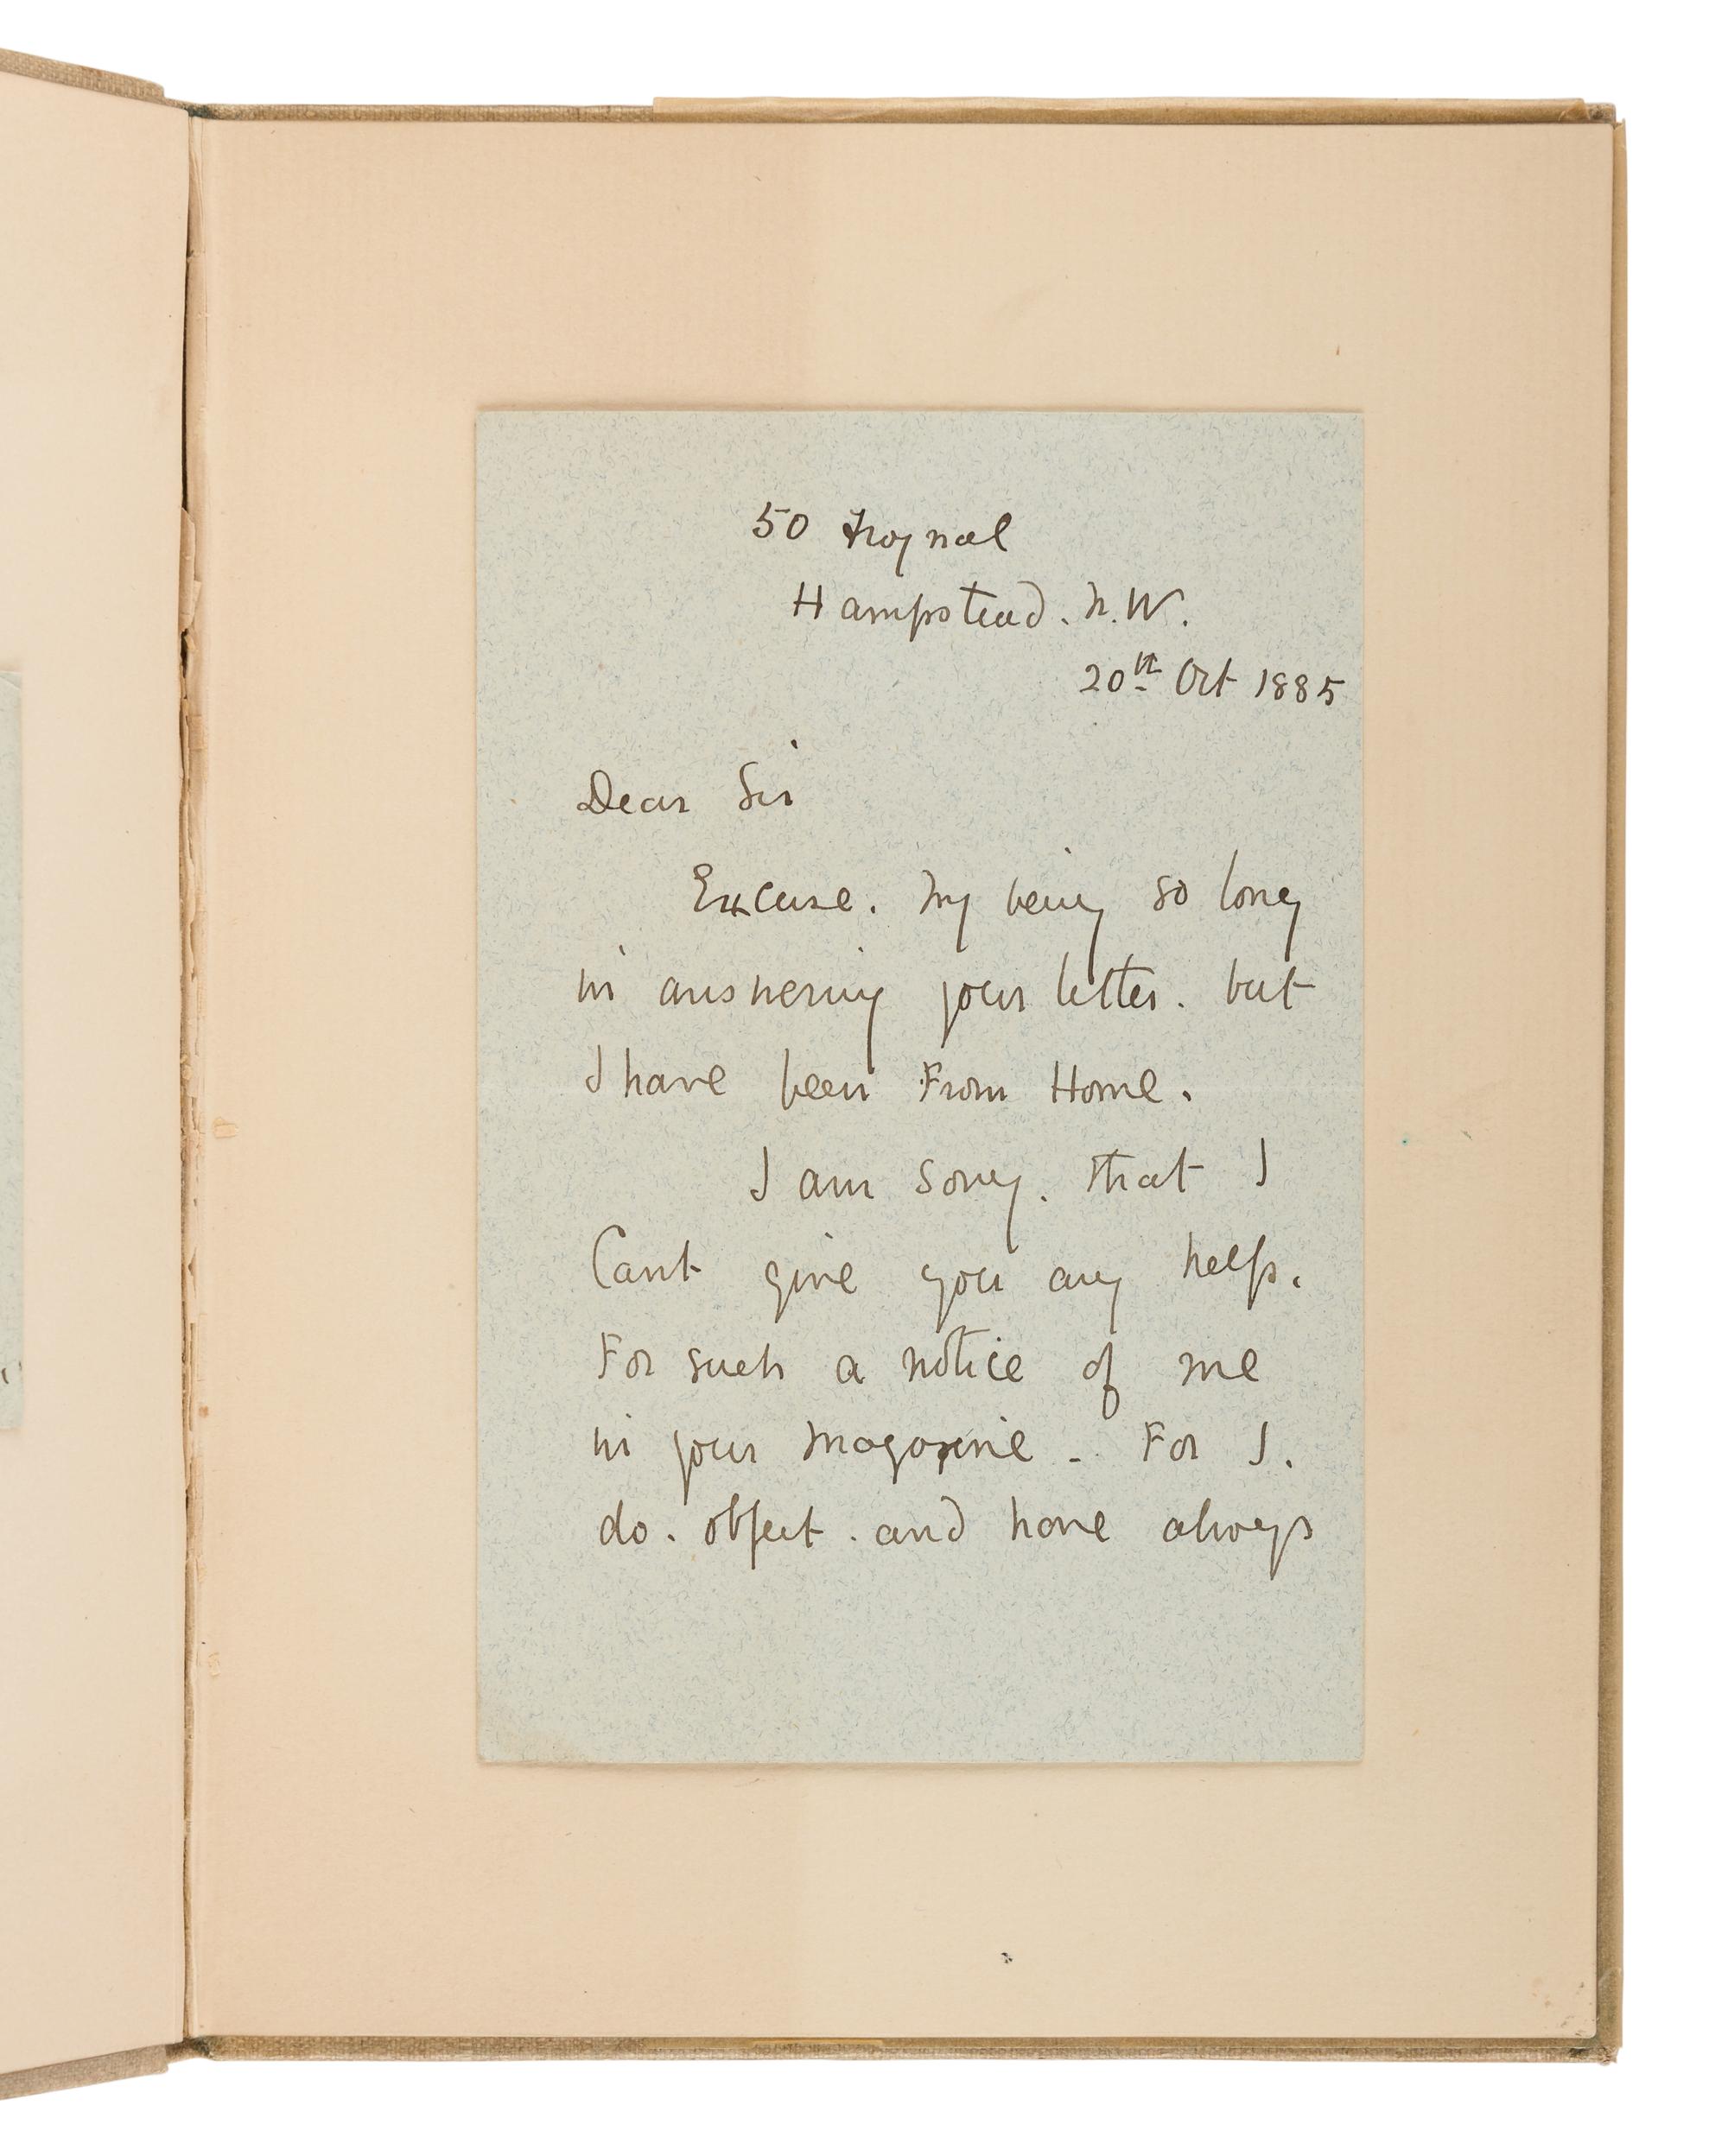 50 Frognal
Hampstead. N.W.
20th Oct 1885
Dear Sir
Excuse. my being so long
in answering your letter. but
I have been From Home.
I am sorry. that I
Cant give you any help.
For such a notice of me
in your magazine - For I.
do. object. and have always